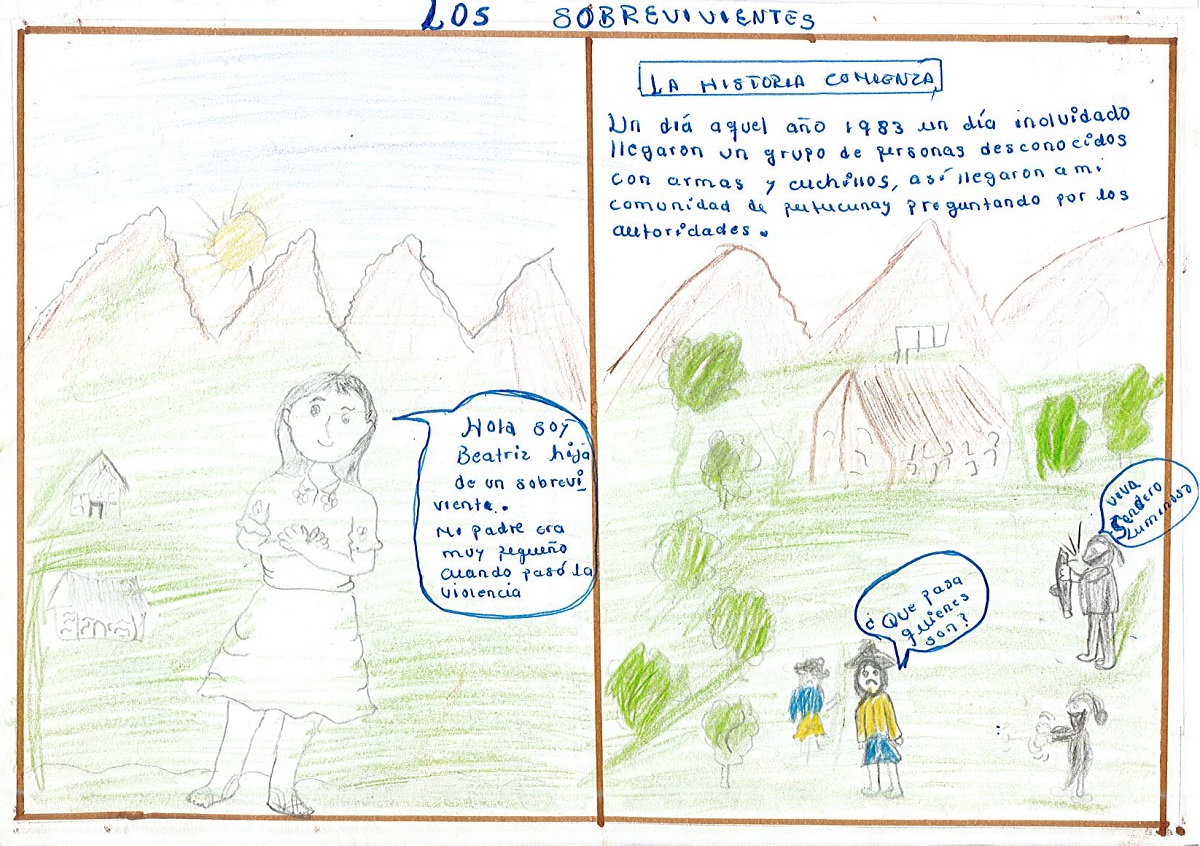 LOS SOBREVIVIENTES
Hola soy
Beatriz hija
de un sobrevi
viente.
Mi padre era
muy pequeño
cuando pasó la
violencia
LA HISTORIA COMIENZA
Un diá aquel año 1983 un día inolvidado
llegaron un grupo de personas desconocidos
con armas y cuchillos, así llegaron a mi
comunidad de putucunay preguntando por los
autoridades.
VIVA
Sendero
Luminoso
¿Que pasa
quienes
son?